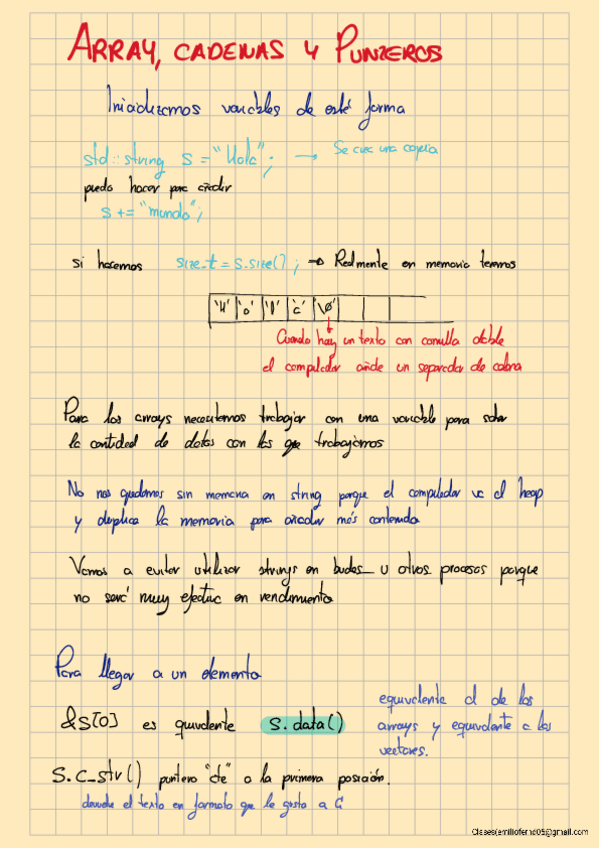 ARRAY, CADENAS Y PUNTEROS
Inicializamos variables de esté forma
std::string s = "Hola"; → Se crea una copia
puedo hacer para añadir
s += "mundo";
si hacemos size_t = s.size(); → Realmente en memoria tenemos
'H' 'o' 'l' 'a' '\0'
Cuando hay un texto con comilla doble
el compilador añade un separador de cadena
Para los arrays necesitamos trabajar con una variable para saber
la cantidad de datos con los que trabajamos
No nos quedamos sin memoria en string porque el compilador va al heap
y duplica la memoria para añadir más contenido
Vamos a evitar utilizar strings en bucles u otros procesos porque
no será muy efectivo en rendimiento
Para llegar a un elemento
&s[0] es quivalente s.data() equivalente al de los
arrays y equivalente a los
vectores.
s.c_str() puntero "cte" a la primera posición.
devuelve el texto en formato que le gusta a C